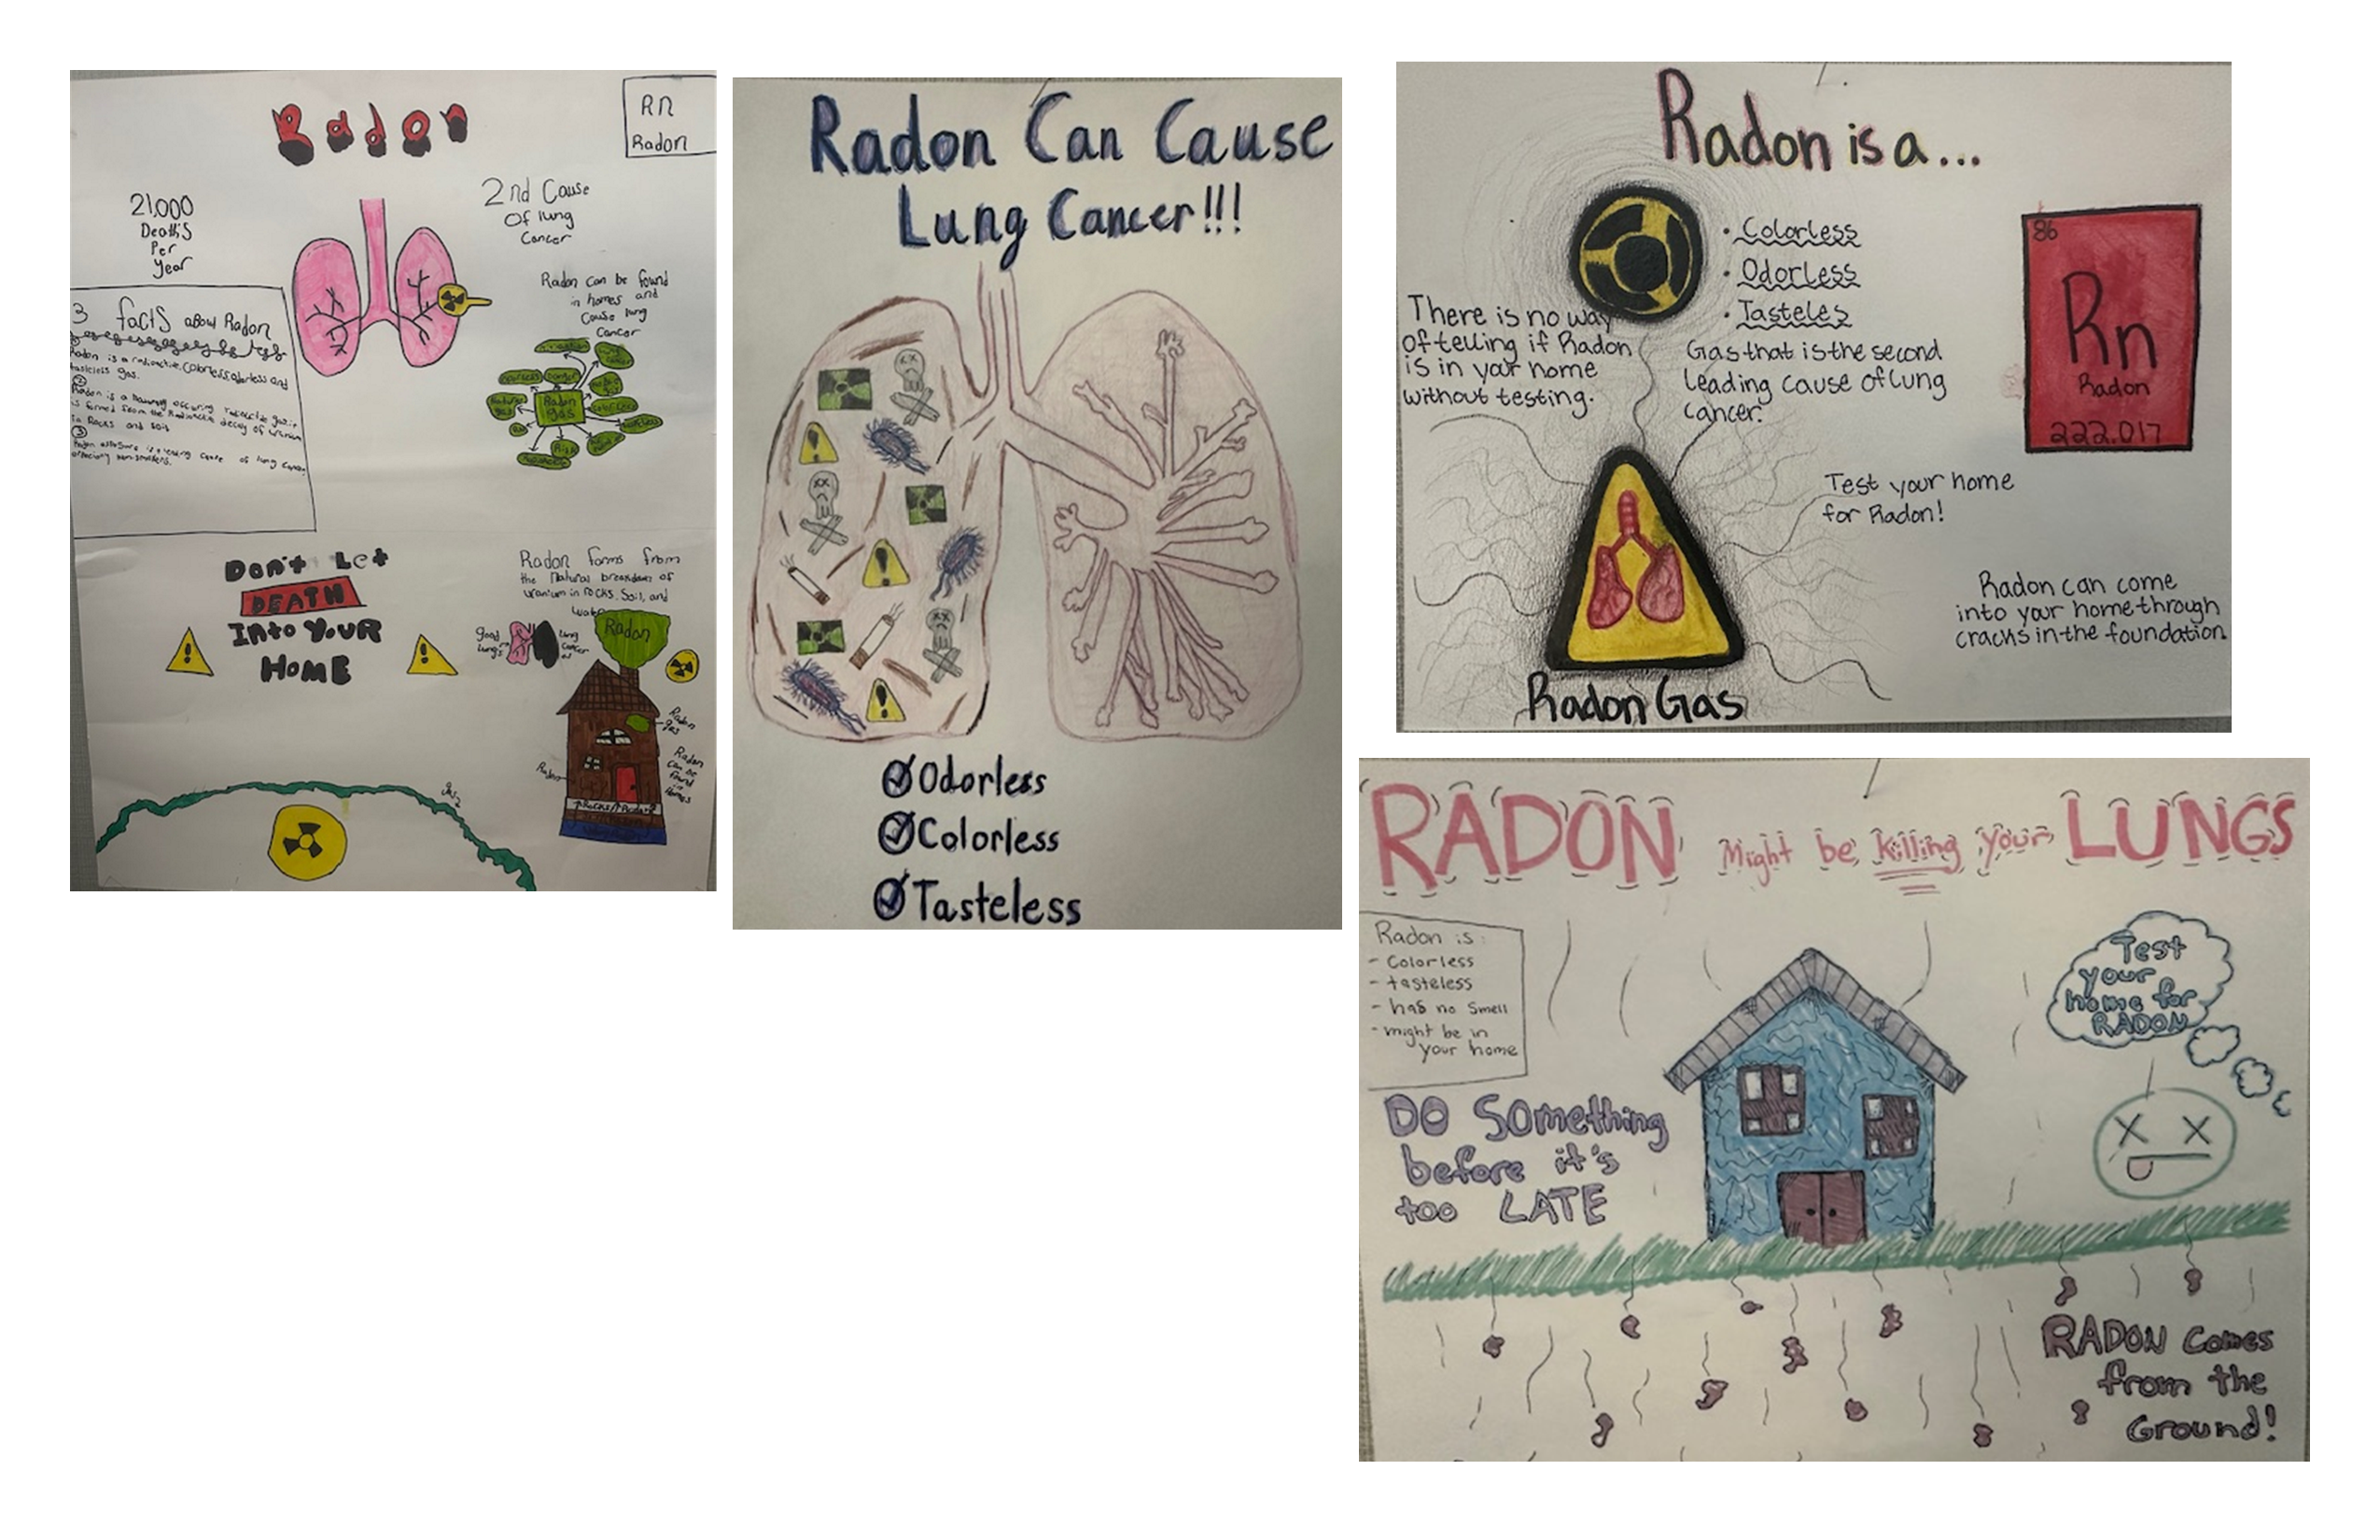 Radon
Rn
Radon
21,000
Death's
Per
Year
2nd Cause
Of lung
Cancer
Radon can be found
in homes and
Cause lung
Cancer
3 facts about Radon
Radon is a radioactive, colorless, odorless and
tasteless gas.
②
Radon is a
is formed from the Radioactive decay of uranium
in Rocks and soil
③
Radon is leading cause of lung cancer
non-smokers.
Radon
gas
Don't Let
DEATH
Into YOUR
HOME
Radon forms from
the Natural breakdown of
uranium in rocks, Soil, and
Good
lungs
lung
cancer
Radon
Radon
gas
Radon
can be
found
in
Homes
Radon
Radon Can Cause
Lung Cancer!!!
Odorless
Colorless
Tasteless
Radon is a...
• Colorless
• Odorless
• Tasteles
Gas that is the second
leading cause of lung
cancer.
There is no way
of telling if Radon
is in your home
without testing.
86
Rn
Radon
222.017
Test your home
for Radon!
Radon can come
into your home through
cracks in the foundation
Radon Gas
RADON Might be killing your LUNGS
Radon is:
- Colorless
- tasteless
- has no smell
- might be in
your home
Test
your
home for
RADON
DO SOmething
before it's
too LATE
RADON Comes
from the
Ground!